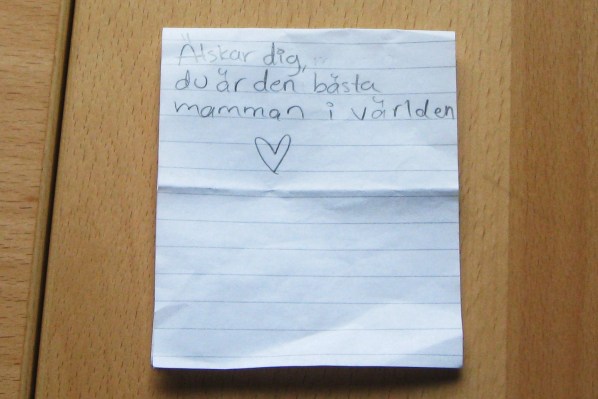 Älskar dig,
du är den bästa
mamman i världen